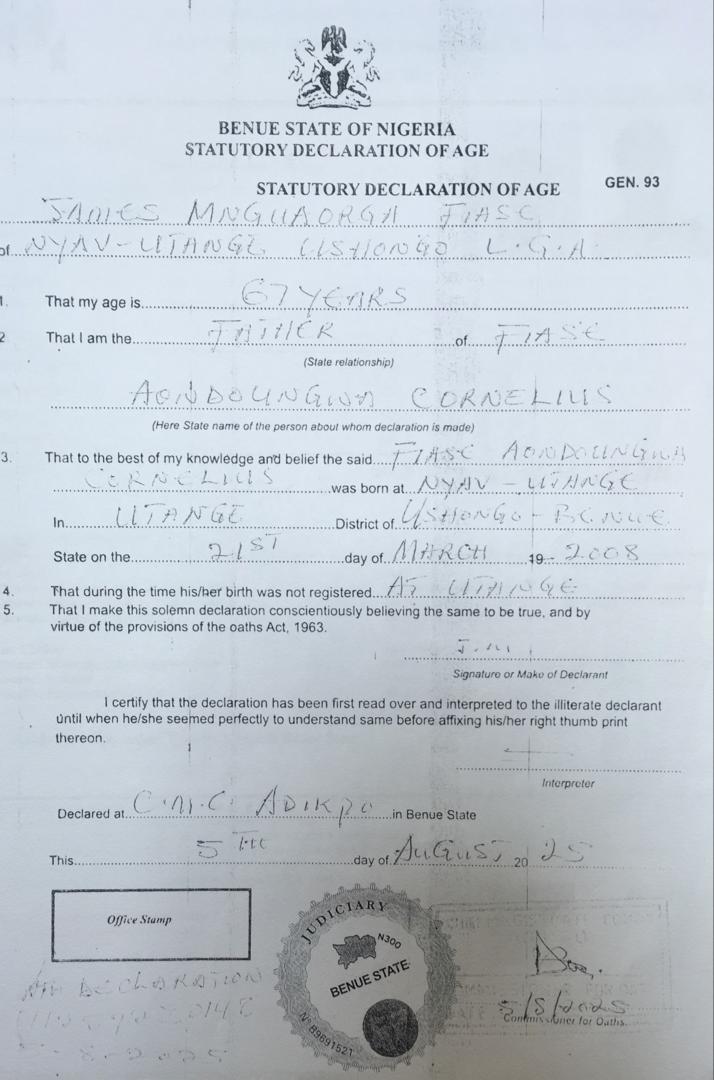 BENUE STATE OF NIGERIA
STATUTORY DECLARATION OF AGE
STATUTORY DECLARATION OF AGE GEN. 93
JAMES MNGUAORGA FIASE
of NYAV-UTANGE USHONGO L.G.A.
1. That my age is 67 YEARS
2 That I am the FATHER of FIASE
(State relationship)
AONDOUNGWA CORNELIUS
(Here State name of the person about whom declaration is made)
3. That to the best of my knowledge and belief the said FIASE AONDOUNGWA
CORNELIUS was born at NYAV-UTANGE
In UTANGE District of USHONGO-BENUE
State on the 21ST day of MARCH 19 2008
4. That during the time his/her birth was not registered AT UTANGE
5. That I make this solemn declaration conscientiously believing the same to be true, and by
virtue of the provisions of the oaths Act, 1963.
Signature or Make of Declarant
I certify that the declaration has been first read over and interpreted to the illiterate declarant
until when he/she seemed perfectly to understand same before affixing his/her right thumb print
thereon.
Interpreter
Declared at C.M.C. ADIKPO in Benue State
This 5TH day of AUGUST, 20 25
Office Stamp
JUDICIARY
N300
BENUE STATE
No 89691521
DECLARATION
5/8/2025
Commissioner for Oaths.